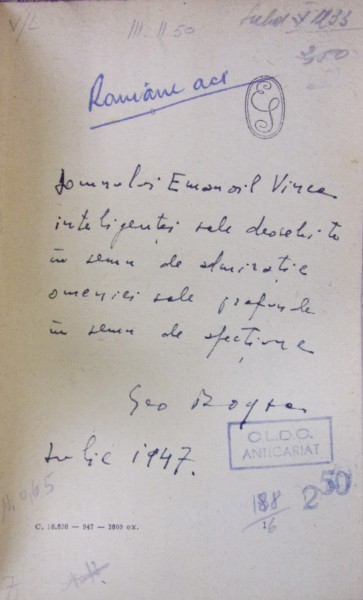 V/L
III. II 50
Române act
ES
Domnului Emanoil Vinea
inteligenței sale deosebite
în semn de admirație
omeniei sale profunde
în semn de afecțiune
Geo Bogza
Iulie 1947.
C.L.D.C.
ANTICARIAT
N. 0,65
188
16
2 50
C. 16.836 — 947 — 3800 ex.